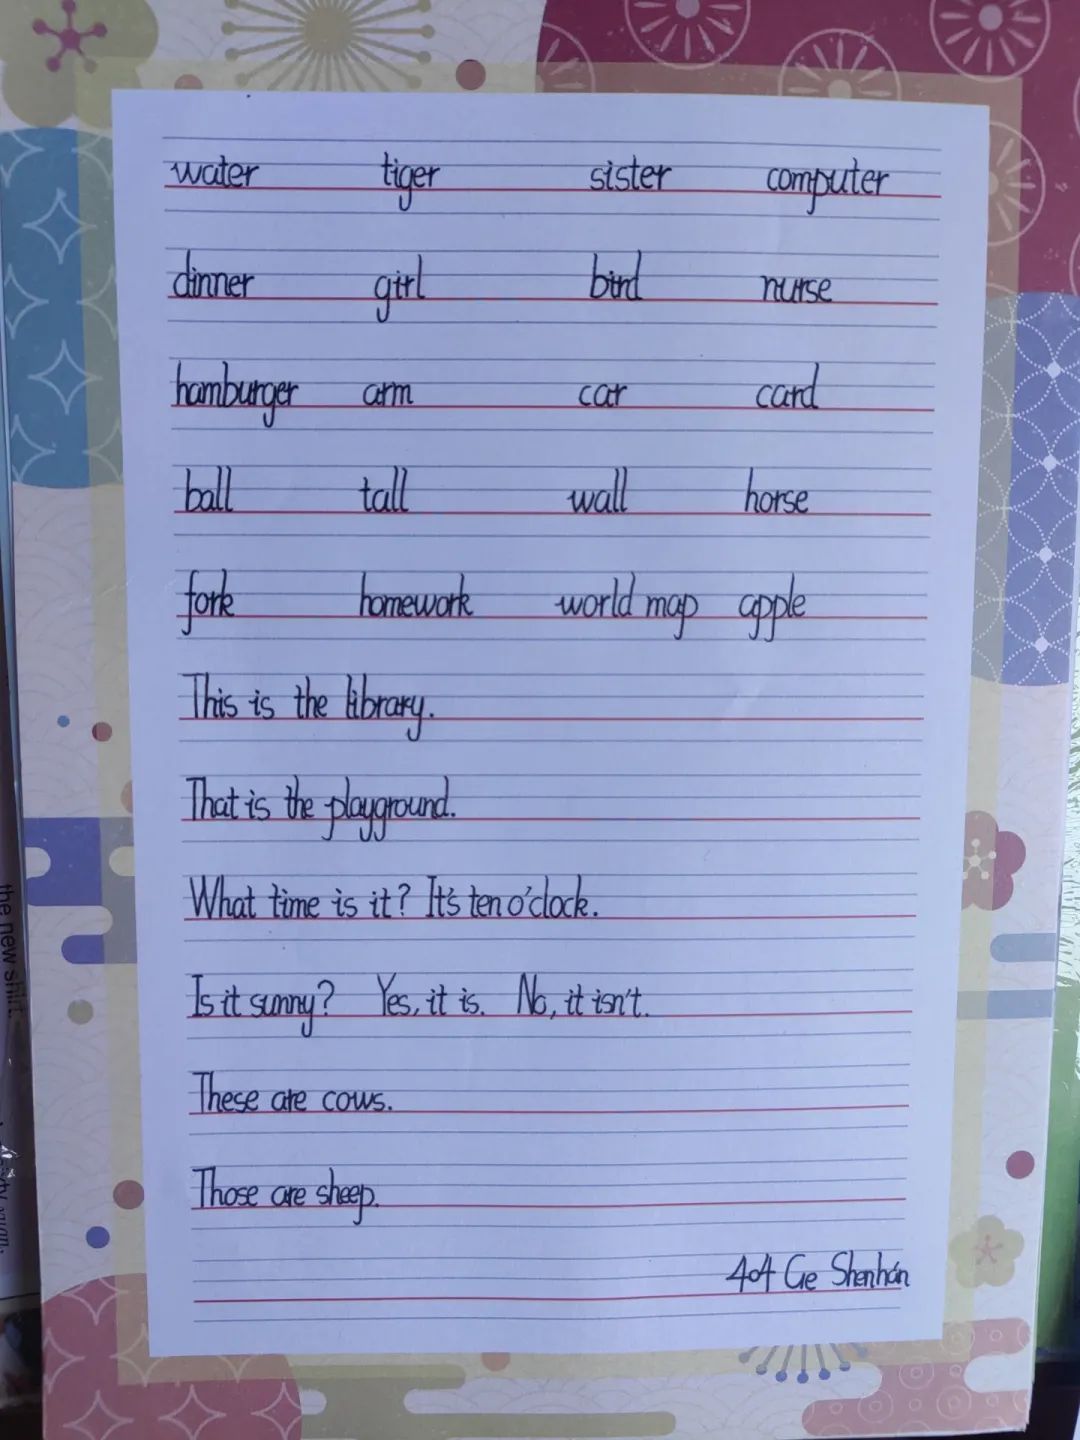 water tiger sister computer
dinner girl bird nurse
hamburger arm car card
ball tall wall horse
fork homework world map apple
This is the library.
That is the playground.
What time is it? It's ten o'clock.
Is it sunny? Yes, it is. No, it isn't.
These are cows.
Those are sheep.
404 Ge Shenhán
the new shirt